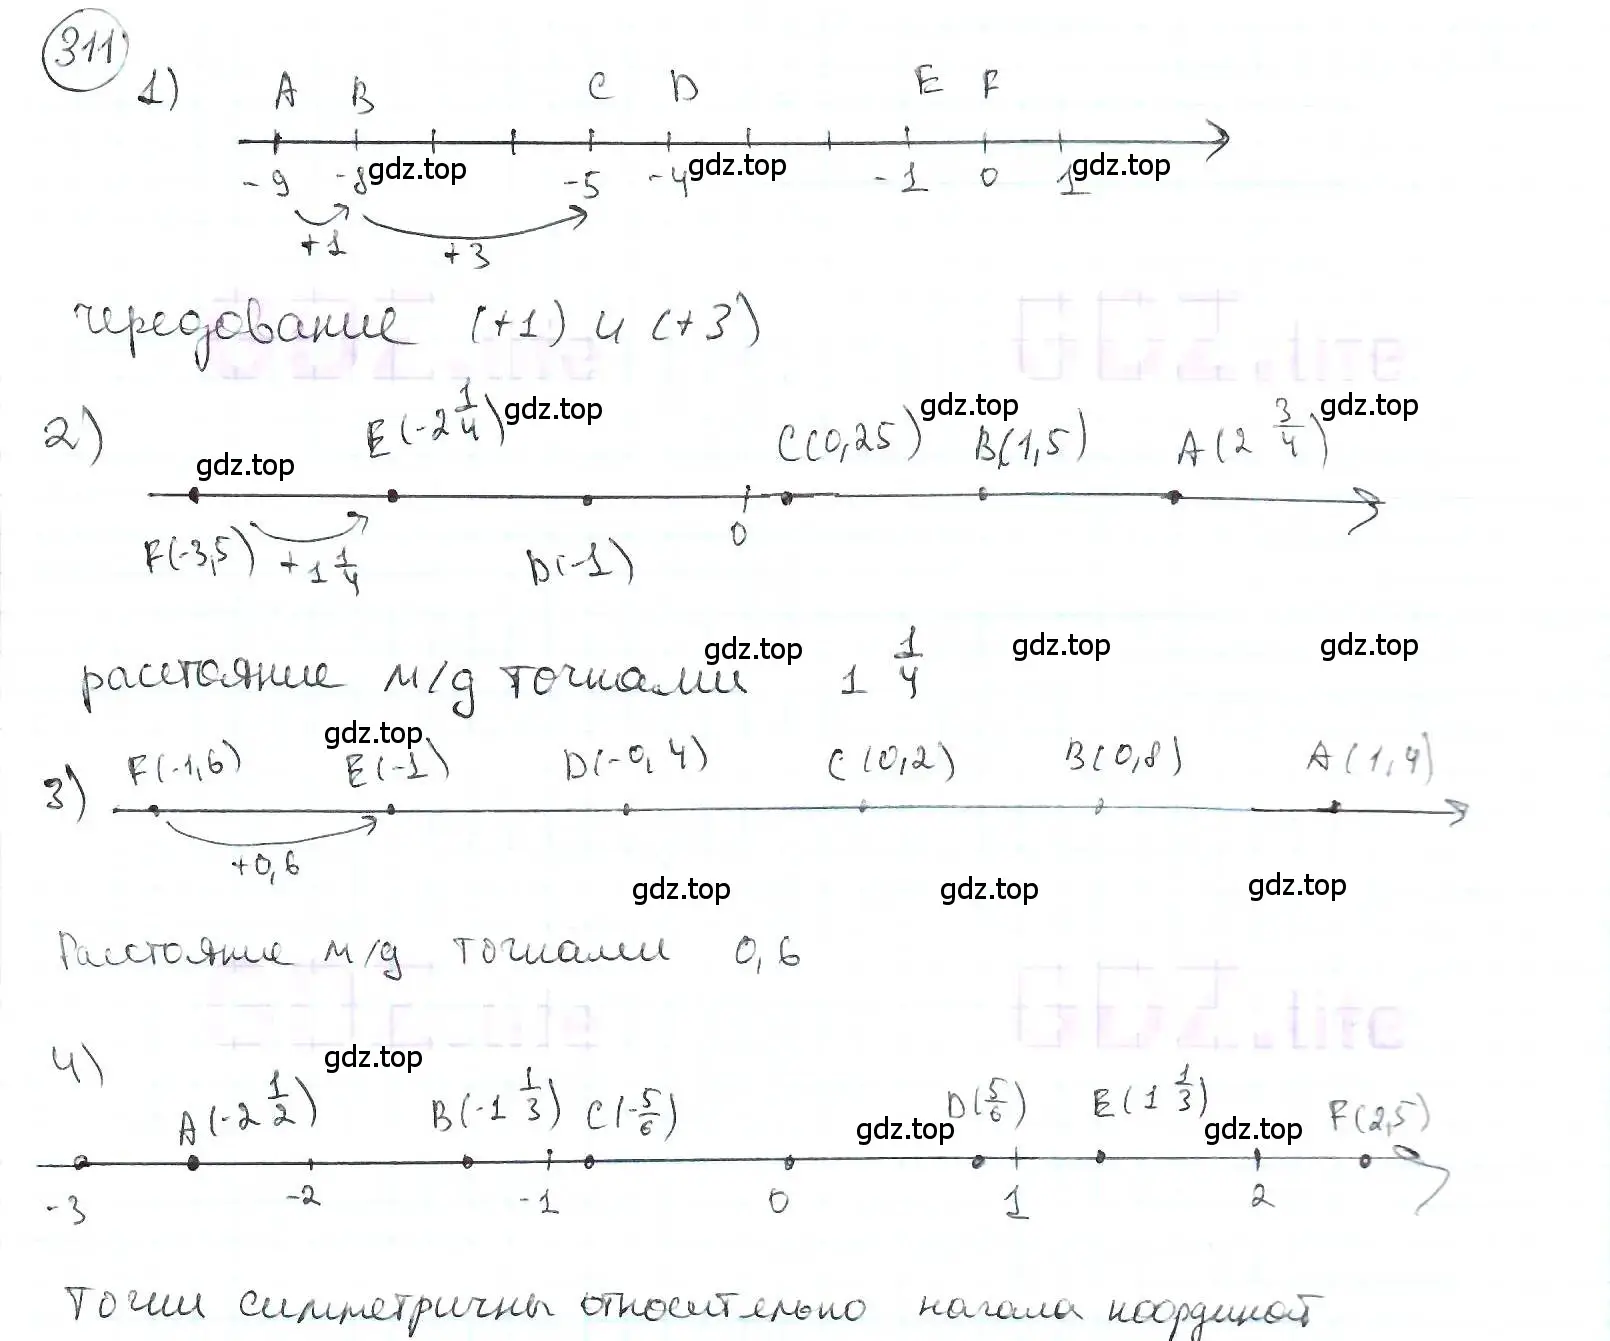 311
1) A B C D E F
-9 -8 gdz.top -5 -4 gdz.top -1 0 1 gdz.top
+1 +3
чередование (+1) и (+3)
2) E(-2 1/4) gdz.top C(0,25) gdz.top B(1,5) A(2 3/4) gdz.top
gdz.top
F(-3,5) +1 1/4 D(-1) 0
расстояние м/д точками 1 1/4 gdz.top gdz.top gdz.top
gdz.top
3) F(-1,6) E(-1) D(-0,4) C(0,2) B(0,8) A(1,4)
+0,6
gdz.top gdz.top gdz.top
Расстояние м/д точками 0,6
4) gdz.top
A(-2 1/2) B(-1 1/3) C(-5/6) D(5/6) E(1 1/3) F(2,5)
gdz.top gdz.top
-3 -2 -1 0 1 2
Точки симметричны относительно начала координат
GDZ.lite
GDZ.lite
GDZ.lite
GDZ.lite